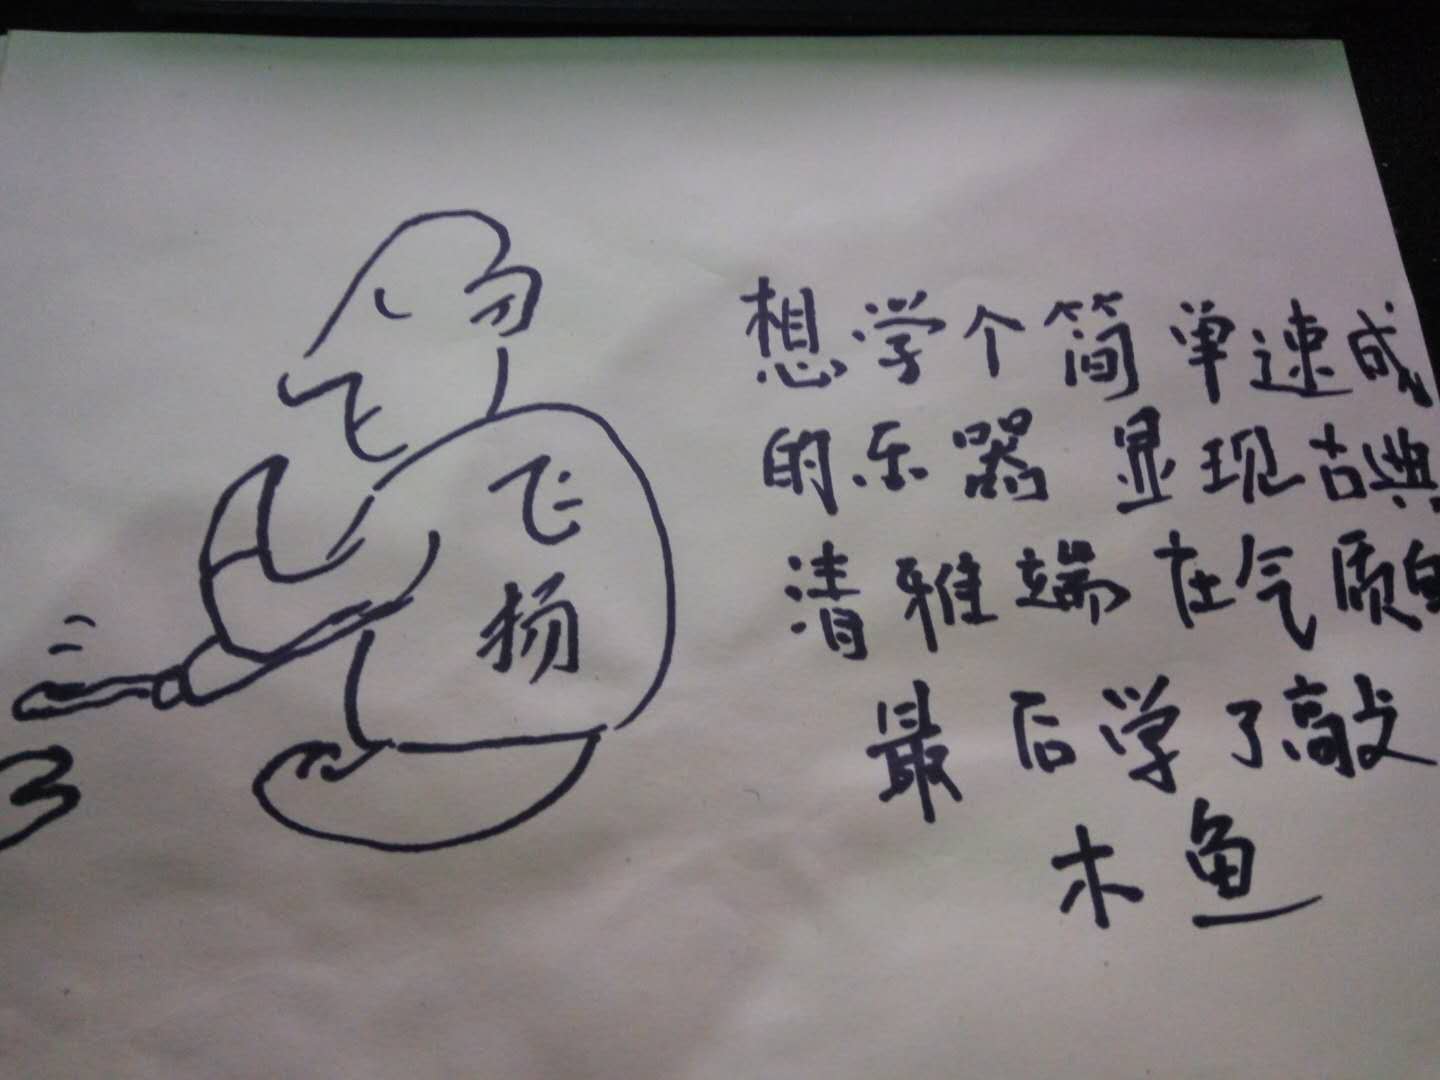 飞扬
想学个简单速成
的乐器 显现古典
清雅端在气质的
最后学了敲
木鱼